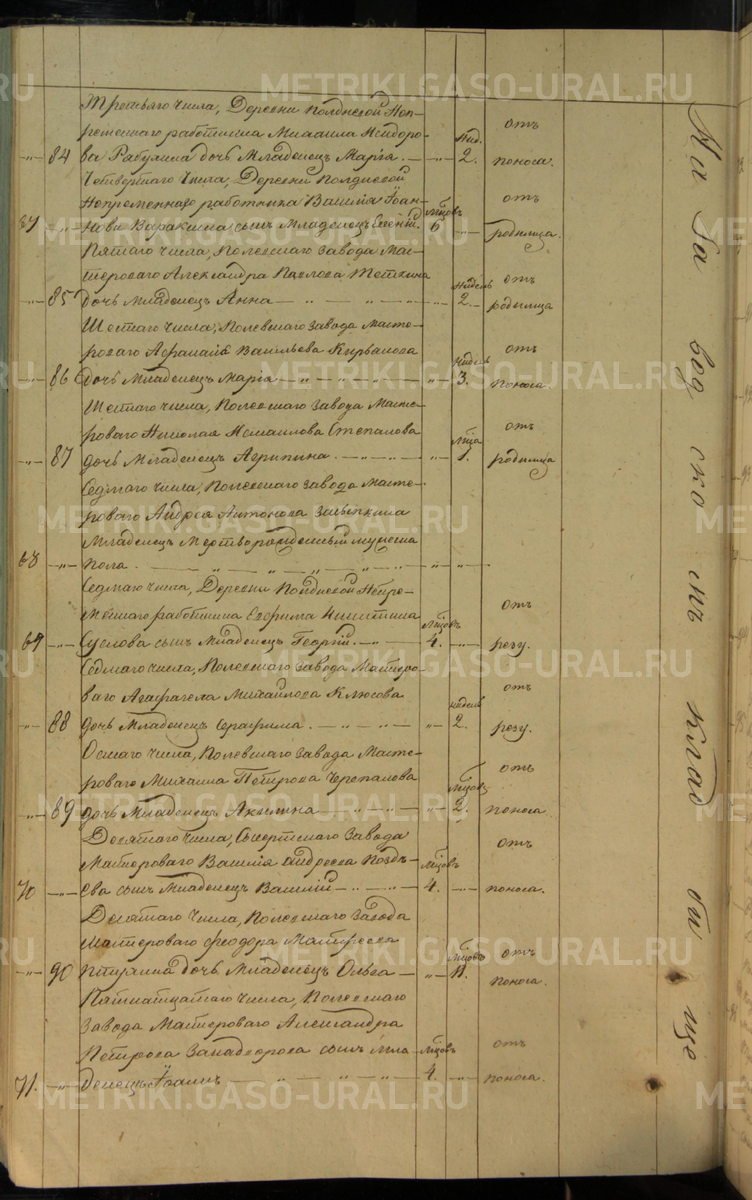 Третьяго числа, Деревни Полдневой Неп-
ременнаго работника Михаила Исидоро-
84 ва Рабухина дочь Младенецъ Марiя. нед. 2. отъ поноса.
Четвертаго числа, Деревни Полдневой
Непременнаго работника Василiя Iоан-
67 нова Варакина сынъ Младенецъ Евгенiй. мѣсцовъ 6 отъ родимца.
Пятаго числа, Полевскаго завода Мас-
тероваго Александра Павлова Теткина
85 дочь Младенецъ Анна недель 2. отъ родимца
Шестаго числа, Полевскаго завода Масте-
роваго Афанасiя Васильева
86 Дочь Младенецъ Марiя недель 3. отъ поноса.
Шестаго числа, Полевскаго завода Масте-
роваго Николая Измаилова Степанова
87 дочь Младенецъ Агрипина. мѣсца 1. отъ родимца
Седмаго числа, Полевскаго завода Масте-
роваго Андрея Антонова
Младенецъ Мертворожденный мужеска
68 пола.
Седмаго числа, Деревни Полдневой Непре-
меннаго работника Ефрема Никитина
69 Суслова сынъ Младенецъ Георгiй. мѣсцовъ 4. отъ резу.
Седмаго числа, Полевскаго завода Мастеро-
ваго Афанасiя Михайлова Клюсова
88 дочь Младенецъ Серафима. недель 2. отъ резу.
Осмаго числа, Полевскаго завода Масте-
роваго Михаила Петрова Черепанова
89 дочь Младенецъ Акилина мѣсцовъ 2. отъ поноса.
Десятаго числа, Сысертскаго завода
Мастероваго Василiя Андреева Поздѣ-
70 ева сынъ Младенецъ Василiй мѣсцовъ 4. отъ поноса.
Десятаго числа, Полевскаго завода
Мастероваго Феодора Матфеева
90 Птухина дочь Младенецъ Ольга мѣсцовъ 11. отъ поноса.
Пятнатцатаго числа, Полевскаго
завода Мастероваго Александра
Петрова Западворова сынъ Мла
71. денецъ Iоаннъ мѣсцовъ 4. отъ поноса.
На За вод ско мъ клад би ще
METRIKI.GASO-URAL.RU